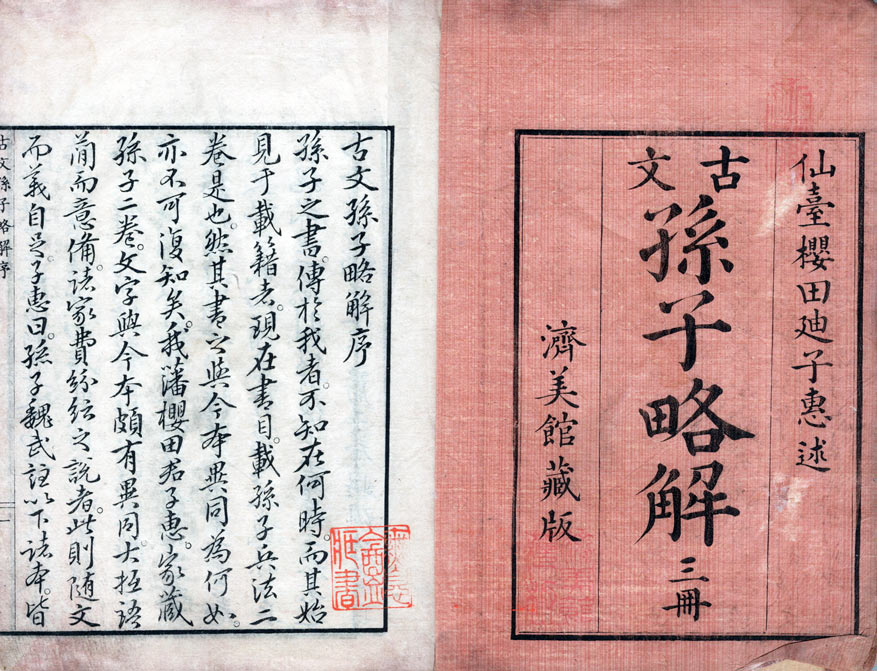 仙臺櫻田廸子惠述
古文
孫子略解 三冊
濟美館藏版
古文孫子略解序
孫子之書。傳於我者。不知在何時。而其始
見于載籍者。現在書目。載孫子兵法二
卷是也。然其書之與今本異同為何如。
亦不可復知矣。我藩櫻田君子惠。家藏
孫子二卷。文字與今本頗有異同。大抵語
簡而意備。諸家費紛紜之說者。此則隨文
而義自足。子惠曰。孫子魏武註以下諸本。皆
古文孫子略解序